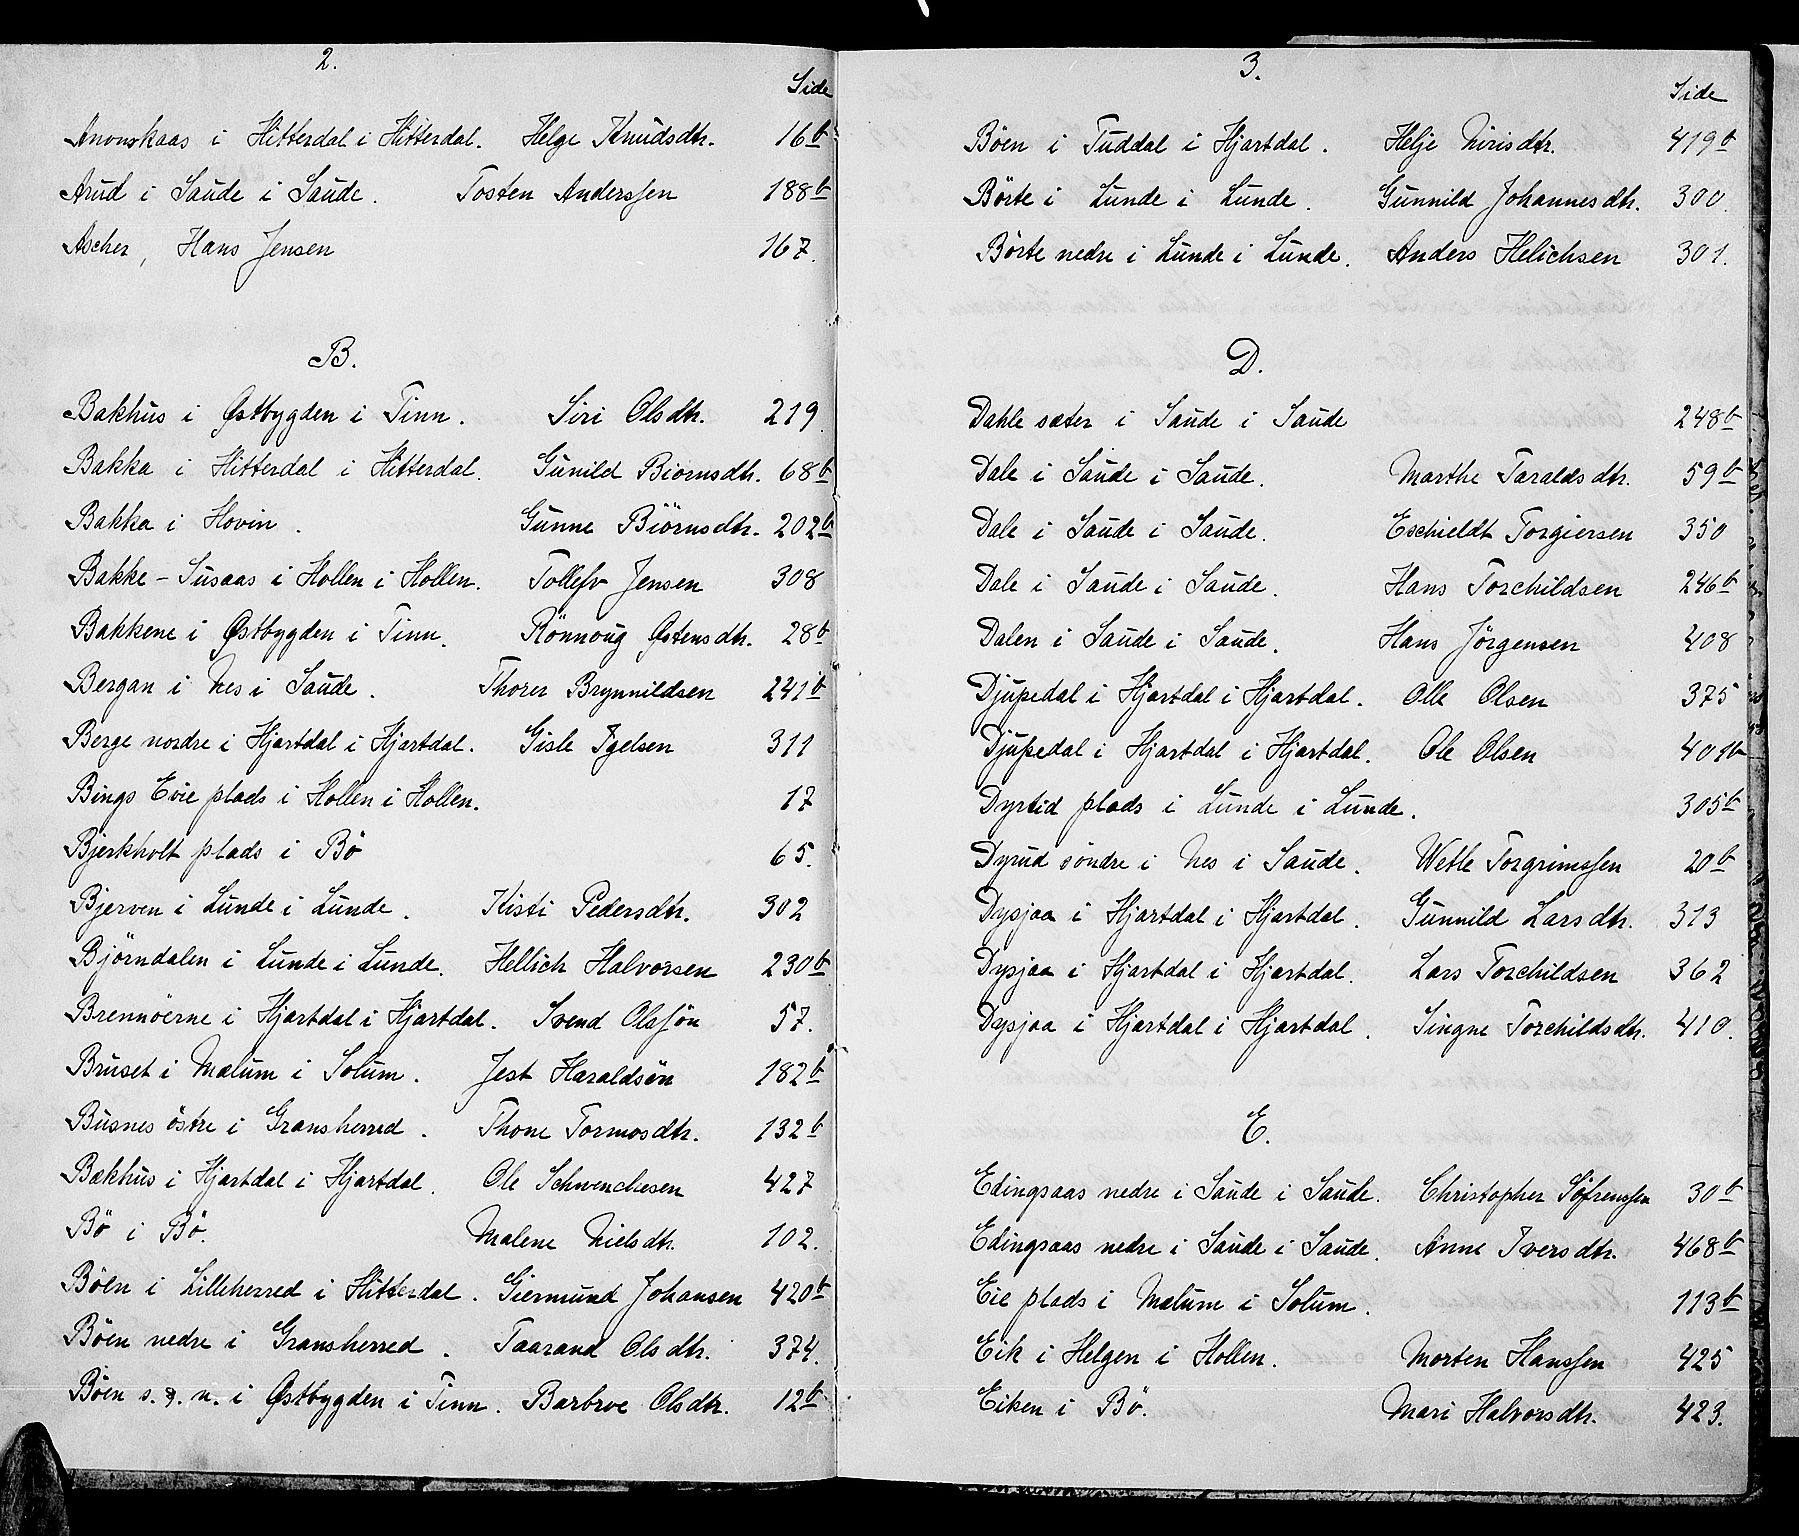 2.
Side
Anonskaas i Hitterdal i Hitterdal. Helge Knudsdtr. 16b
Arud i Saude i Saude. Tosten Anderssen 188b
Ascher, Hans Jensen 167.
B.
Bakhus i Østbygden i Tinn. Siri Olsdtr. 219
Bakka i Hitterdal i Hitterdal. Gunild Biornsdtr. 68b
Bakka i Hovin. Gunne Biörnsdtr. 202b
Bakke-Susaas i Hollen i Hollen. Tollefv Jensen 308
Bakkene i Østbygden i Tinn. Rönnoug Østensdtr. 28b
Bergan i Nes i Saude. Thorer Brynnildsen 241b
Berge nordre i Hjartdal i Hjartdal. Gisle Igelsen 311
Bings Eie plads i Hollen i Hollen. 17
Bjerkholt plads i Bö 65.
Bjerven i Lunde i Lunde. Kisti Pedersdtr. 302
Björndalen i Lunde i Lunde. Hellich Halvorsen 230b
Brennöerne i Hjartdal i Hjartdal. Svend Olssön 57.
Bruset i Mælum i Solum. Jest Haraldsön 182b
Busnes östre i Gransherred. Thone Tormosdtr. 132b
Bækhus i Hjartdal i Hjartdal. Ole Schwenchesen 427
Bö i Bö. Malene Nielsdtr. 102.
Böen i Lilleherred i Hitterdal. Giermund Johansen 420b
Böen nedre i Gransherred. Taarand Olsdtr. 374.
Böen s. & n. i Østbygden i Tinn. Barbroe Olsdtr. 12b
3.
Side
Böen i Tuddal i Hjartdal. Helje Nirisdtr. 419b
Börte i Lunde i Lunde. Gunnild Johannesdtr. 300.
Börte nedre i Lunde i Lunde. Anders Helichsen 301.
D.
Dahle sæter i Saude i Saude 248b
Dale i Saude i Saude. Marthe Taraldsdtr. 59b
Dale i Saude i Saude. Eschieldt Torgiersen 350
Dale i Saude i Saude. Hans Torchildsen 246b
Dalen i Saude i Saude. Hans Jörgensen 408
Djupedal i Hjartdal i Hjartdal. Olle Olsen 375
Djupedal i Hjartdal i Hjartdal. Ole Olsen 401b
Dyrtid plads i Lunde i Lunde. 305b
Dyrud söndre i Nes i Saude. Wetle Torgrimssen 20b
Dysjaa i Hjartdal i Hjartdal. Gunnild Larsdtr. 313
Dysjaa i Hjartdal i Hjartdal. Lars Torchildsen 362
Dysjaa i Hjartdal i Hjartdal. Singne Torchildsdtr. 410.
E.
Edingsaas nedre i Saude i Saude. Christopher Söfrenssen 30b
Edingsaas nedre i Saude i Saude. Anne Iversdtr. 468b
Eie plads i Mælum i Solum. 113b
Eik i Helgen i Hollen. Morten Hanssen 425
Eiken i Bö. Mari Halvorsdtr. 423.